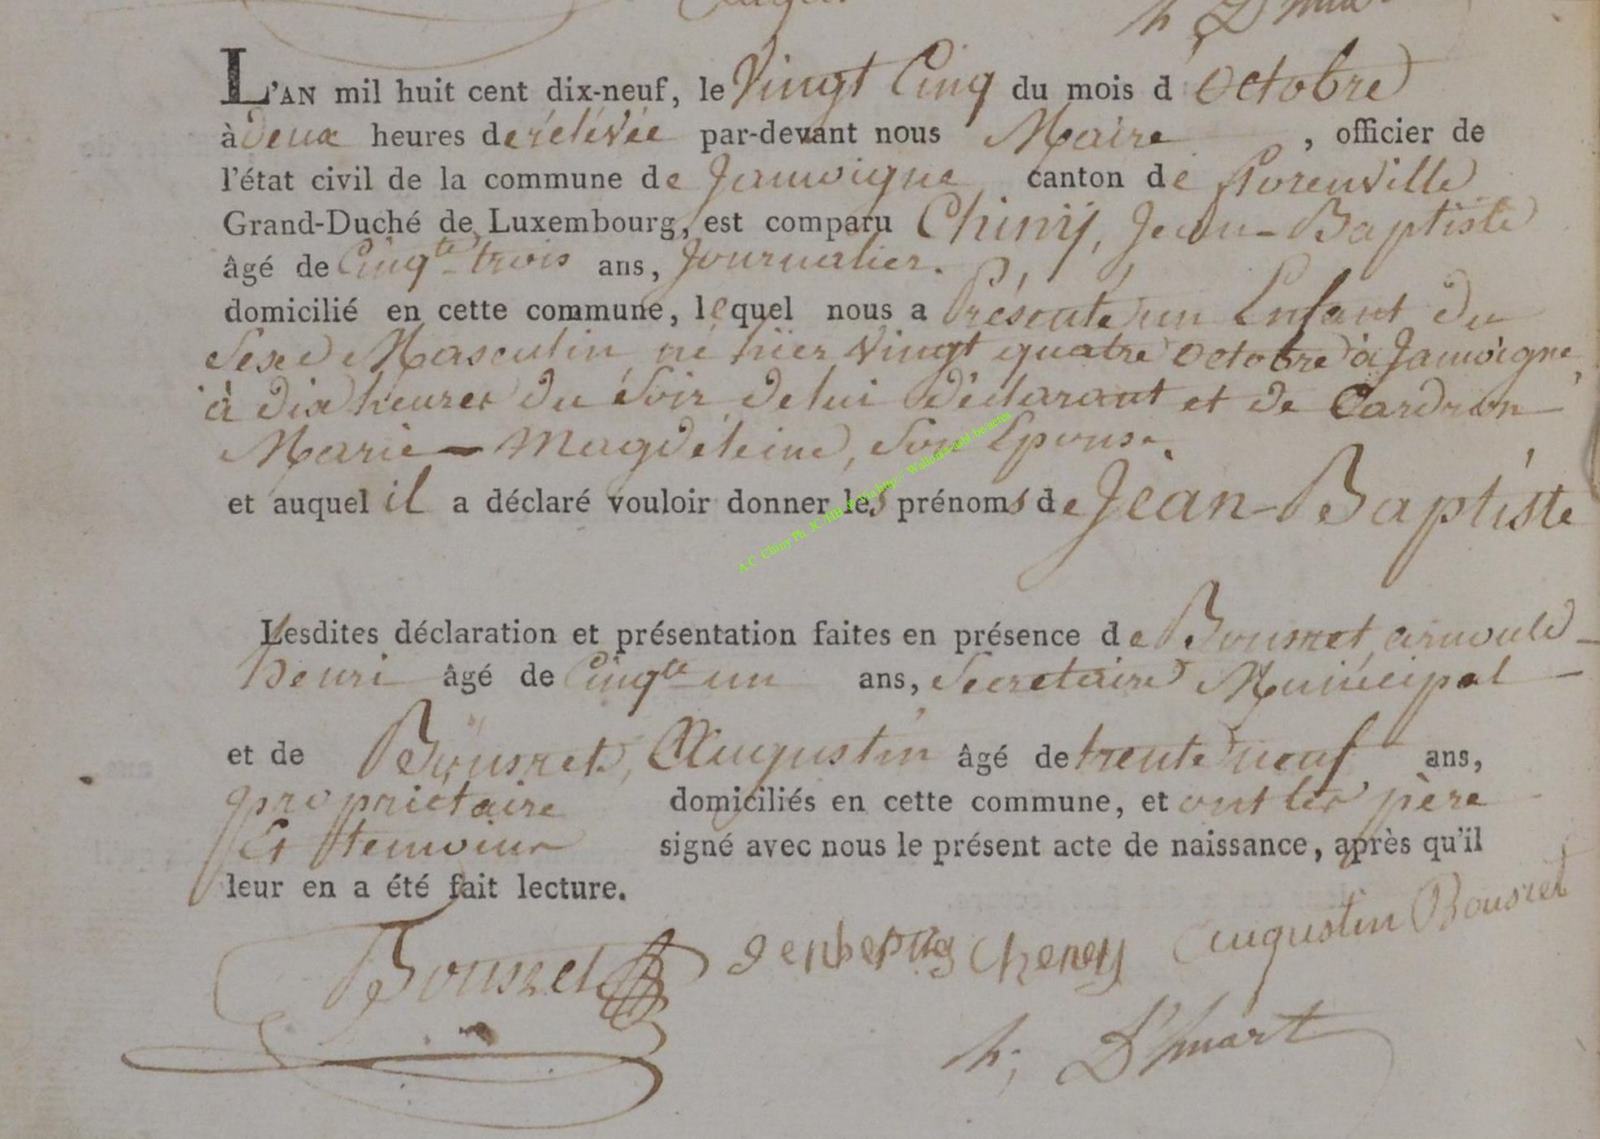 L'AN mil huit cent dix-neuf, le Vingt Cinq du mois d Octobre
à deux heures de rélévée par-devant nous Maire, officier de
l'état civil de la commune de Jamoigne canton de florenville
Grand-Duché de Luxembourg, est comparu Chiny, Jean-Baptiste
âgé de Cinqte trois ans, Journalier.
domicilié en cette commune, lequel nous a Présenté un Enfant du
Sexe Masculin, né hier Vingt quatre octobre à Jamoigne,
à dix heures du Soir, de lui déclarant et de Cardron
Marie-Magdeleine, son Epouse.
et auquel il a déclaré vouloir donner les prénoms de Jean-Baptiste
A.C. Chiny Ph.
Lesdites déclaration et présentation faites en présence de Bousret, arnould
henri âgé de Cinqte un ans, Sécretaire Municipal
et de Bousret, Augustin âgé de trente neuf ans,
propriétaire domiciliés en cette commune, et ont les père
Et temoins signé avec nous le présent acte de naissance, après qu'il
leur en a été fait lecture.
Bousret Cheney Augustin Bousret
h; D'huart